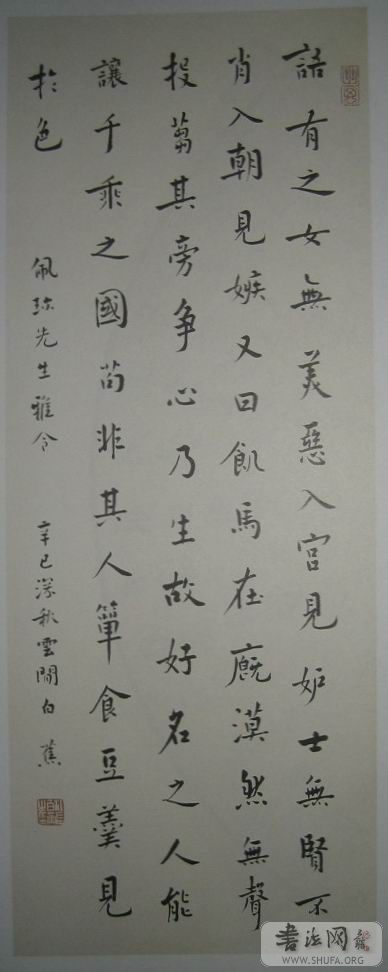 語有之女無美惡入宮見妒士無賢不
肖入朝見嫉又曰飢馬在廐漠然無聲
投芻其旁爭心乃生故好名之人能
讓千乘之國苟非其人簞食豆羹見
於色
佩珎先生雅令 辛巳深秋雲間白蕉
書法网
WWW.SHUFA.ORG